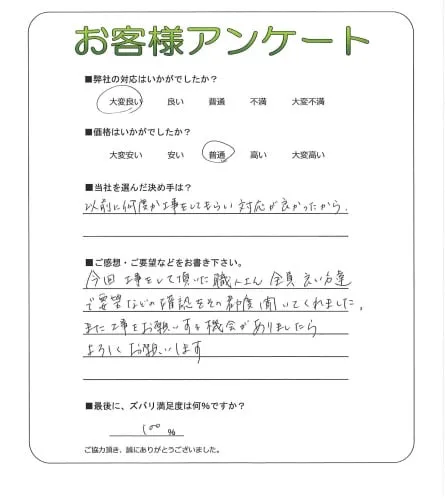 お客様アンケート
■弊社の対応はいかがでしたか?
大変良い 良い 普通 不満 大変不満
■価格はいかがでしたか?
大変安い 安い 普通 高い 大変高い
■当社を選んだ決め手は?
以前に何度か工事をしてもらい対応が良かったから.
■ご感想・ご要望などをお書き下さい。
今回工事をして頂いた職人さん全員良い方達
で要望などの確認をその都度聞いてくれました。
また工事をお願いする機会がありましたら
よろしくお願いします
■最後に、ズバリ満足度は何%ですか?
100 %
ご協力頂き、誠にありがとうございました。